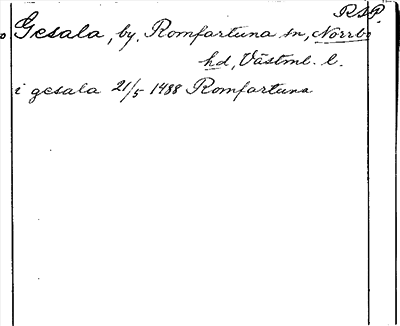 RSP.
Gesala, by, Romfartuna sn, Norrbo
hd, Västml. l.
i gesala 21/5 1488 Romfartuna